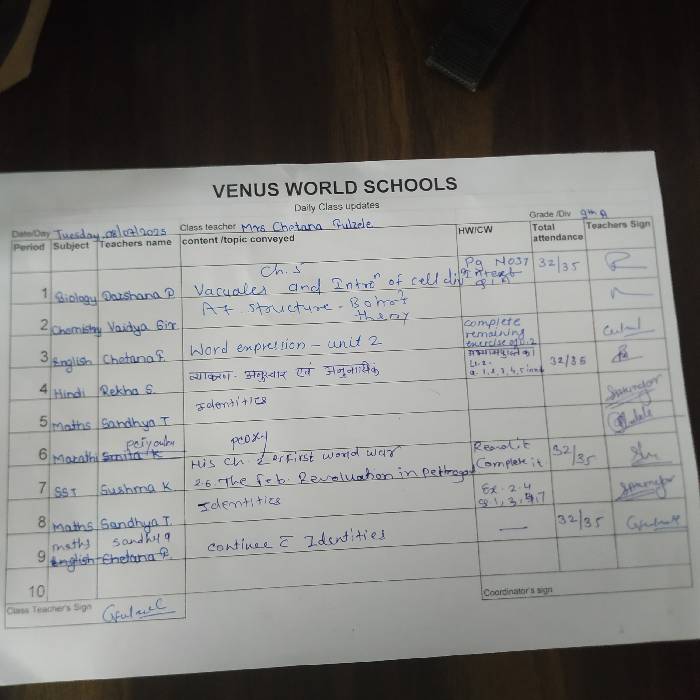 VENUS WORLD SCHOOLS
Daily Class updates
Date/Day Tuesday 08/07/2025 Class teacher Mrs Chetana Fulzele Grade /Div 9th A
Period Subject Teachers name content /topic conveyed HW/CW Total attendance Teachers Sign
Ch. 5 Pg No 37
1 Biology Darshana D Vacuoles and Intron of cell div Intext 32/35
At structure - Bohr's
2 Chemistry Vaidya Sir theory
3 English Chetana F. Word expression - unit 2 complete remaining exercise
4 Hindi Rekha S. व्याकरण - अनुस्वार एवं अनुनासिक 32/35
5 Maths Sandhya T Identities
6 Marathi Smita K
His Ch. 2 First world war Readit 32/35
7 SST Sushma K 2.6. The Feb. Revoluation in Complete it
8 Maths Sandhya T. Identities Ex. 2.4
maths Sandhya
9 English Chetana F. continue Identities — 32/35
10
Class Teacher's Sign Coordinator's sign